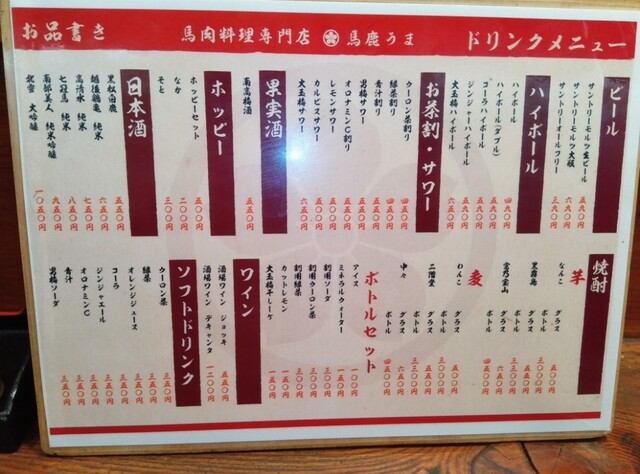 お品書き 馬肉料理専門店 馬鹿うま ドリンクメニュー
ビール
サントリーモルツ生ビール 五九〇円
サントリーモルツ大瓶 六九〇円
サントリーオールフリー 三九〇円
ハイボール
ハイボール 四九〇円
ハイボール(ダブル) 五九〇円
コーラハイボール 五九〇円
ジンジャーハイボール 五九〇円
大玉梅ハイボール 六五〇円
お茶割・サワー
ウーロン茶割り 四五〇円
緑茶割り 四五〇円
青汁割り 五五〇円
男梅サワー 五五〇円
オロナミンC割り 五五〇円
レモンサワー 五〇〇円
カルピスサワー 五〇〇円
大玉梅サワー 六五〇円
果実酒
南高梅酒 五五〇円
ホッピー
ホッピーセット 五〇〇円
なか 二〇〇円
そと 三〇〇円
日本酒
黒松白鹿 五五〇円
越後鶴亀 純米 六五〇円
高清水 純米 七五〇円
七冠馬 純米 八五〇円
南部美人 純米吟醸 九五〇円
北雪 大吟醸 一〇五〇円
焼酎
芋
なんこ グラス 五五〇円
ボトル 三〇〇〇円
黒霧島 グラス 五五〇円
ボトル 三三〇〇円
富乃宝山 グラス 六五〇円
ボトル 四五〇〇円
麦
わんこ グラス 五五〇円
ボトル 三〇〇〇円
二階堂 グラス 五五〇円
ボトル 三三〇〇円
中々 グラス 六五〇円
ボトル 四五〇〇円
ボトルセット
アイス 一〇〇円
ミネラルウォーター 一五〇円
割用ソーダ 三〇〇円
割用ウーロン茶 三〇〇円
割用緑茶 三〇〇円
カットレモン 一五〇円
大玉梅干し一ケ 一五〇円
ワイン
酒場ワイン ジョッキ 五五〇円
酒場ワイン デキャンタ 一二〇〇円
ソフトドリンク
ウーロン茶 三五〇円
緑茶 三五〇円
オレンジジュース 三五〇円
コーラ 三五〇円
ジンジャエール 三五〇円
オロナミンC 三五〇円
青汁 三五〇円
男梅ソーダ 三五〇円